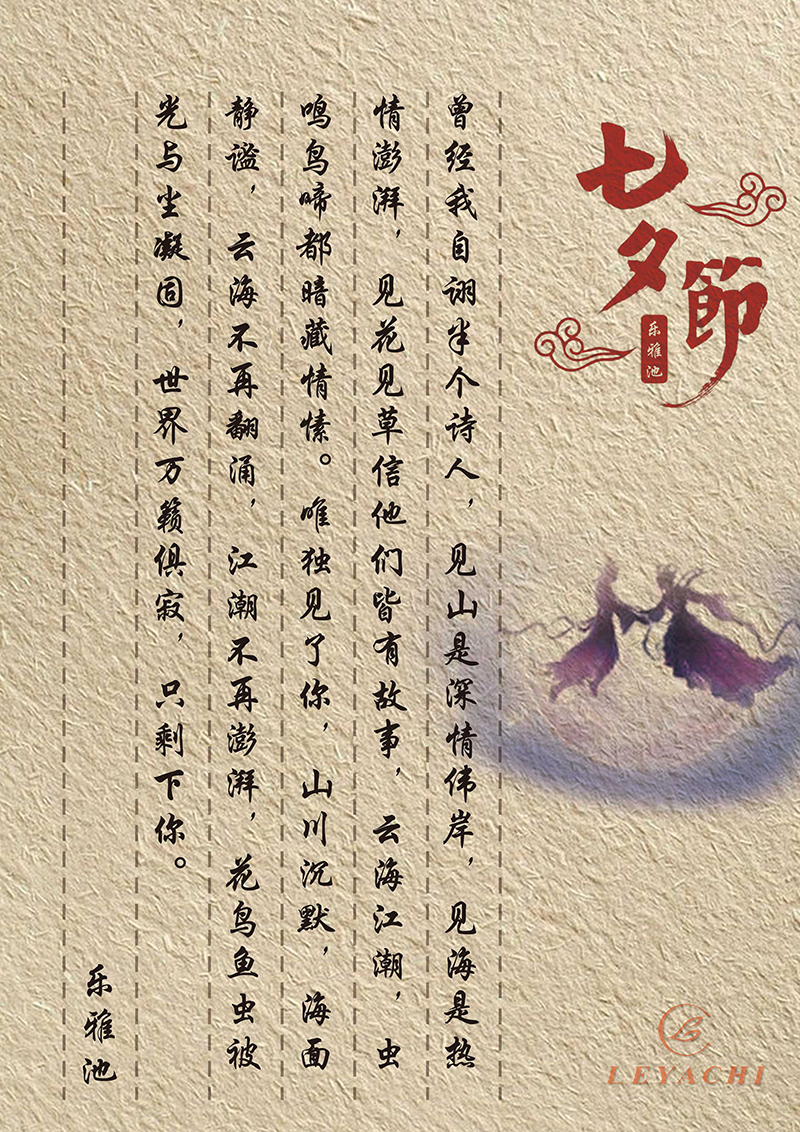 七夕節
乐雅池
曾经我自诩半个诗人，见山是深情伟岸，见海是热
情澎湃，见花见草信他们皆有故事，云海江潮，虫
鸣鸟啼都暗藏情愫。唯独见了你，山川沉默，海面
静谧，云海不再翻涌，江潮不再澎湃，花鸟鱼虫被
光与尘凝固，世界万籁俱寂，只剩下你。
乐雅池
LEYACHI